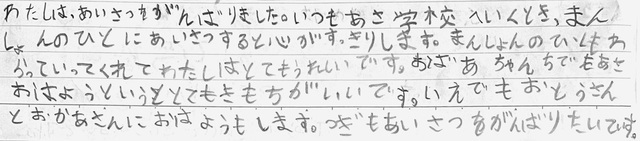 わたしは、あいさつをがんばりました。いつもあさ学校へいくとき、まん
しょんのひとにあいさつすると心がすっきりします。まんしょんのひともわ
らっていってくれてわたしはとてもうれしいです。おばあちゃんちでもあさ
おはようというととてもきもちがいいです。いえでもおとうさん
とおかあさんにおはようもします。つぎもあいさつをがんばりたいです。